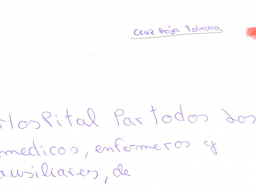 Cruz Roja
Hospital Par todos los
medicos, enfermeros y
auxiliares, de